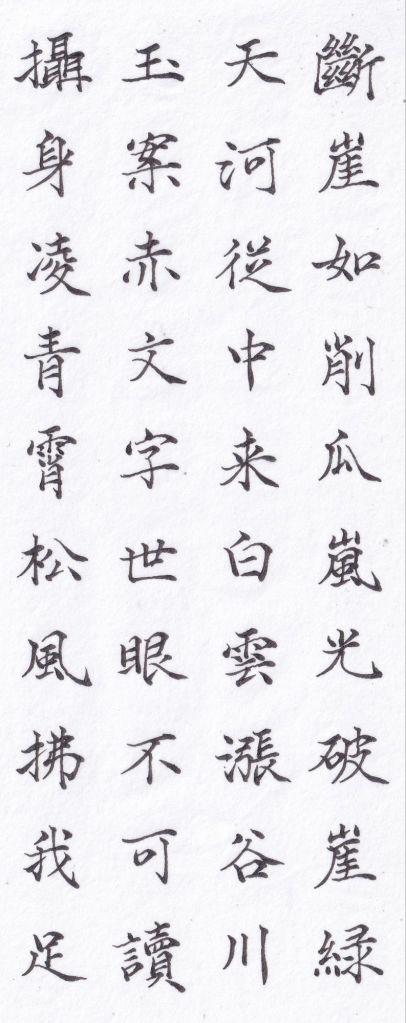 斷崖如削瓜嵐光破崖緑
天河從中来白雲漲谷川
玉案赤文字世眼不可讀
攝身凌青霄松風拂我足